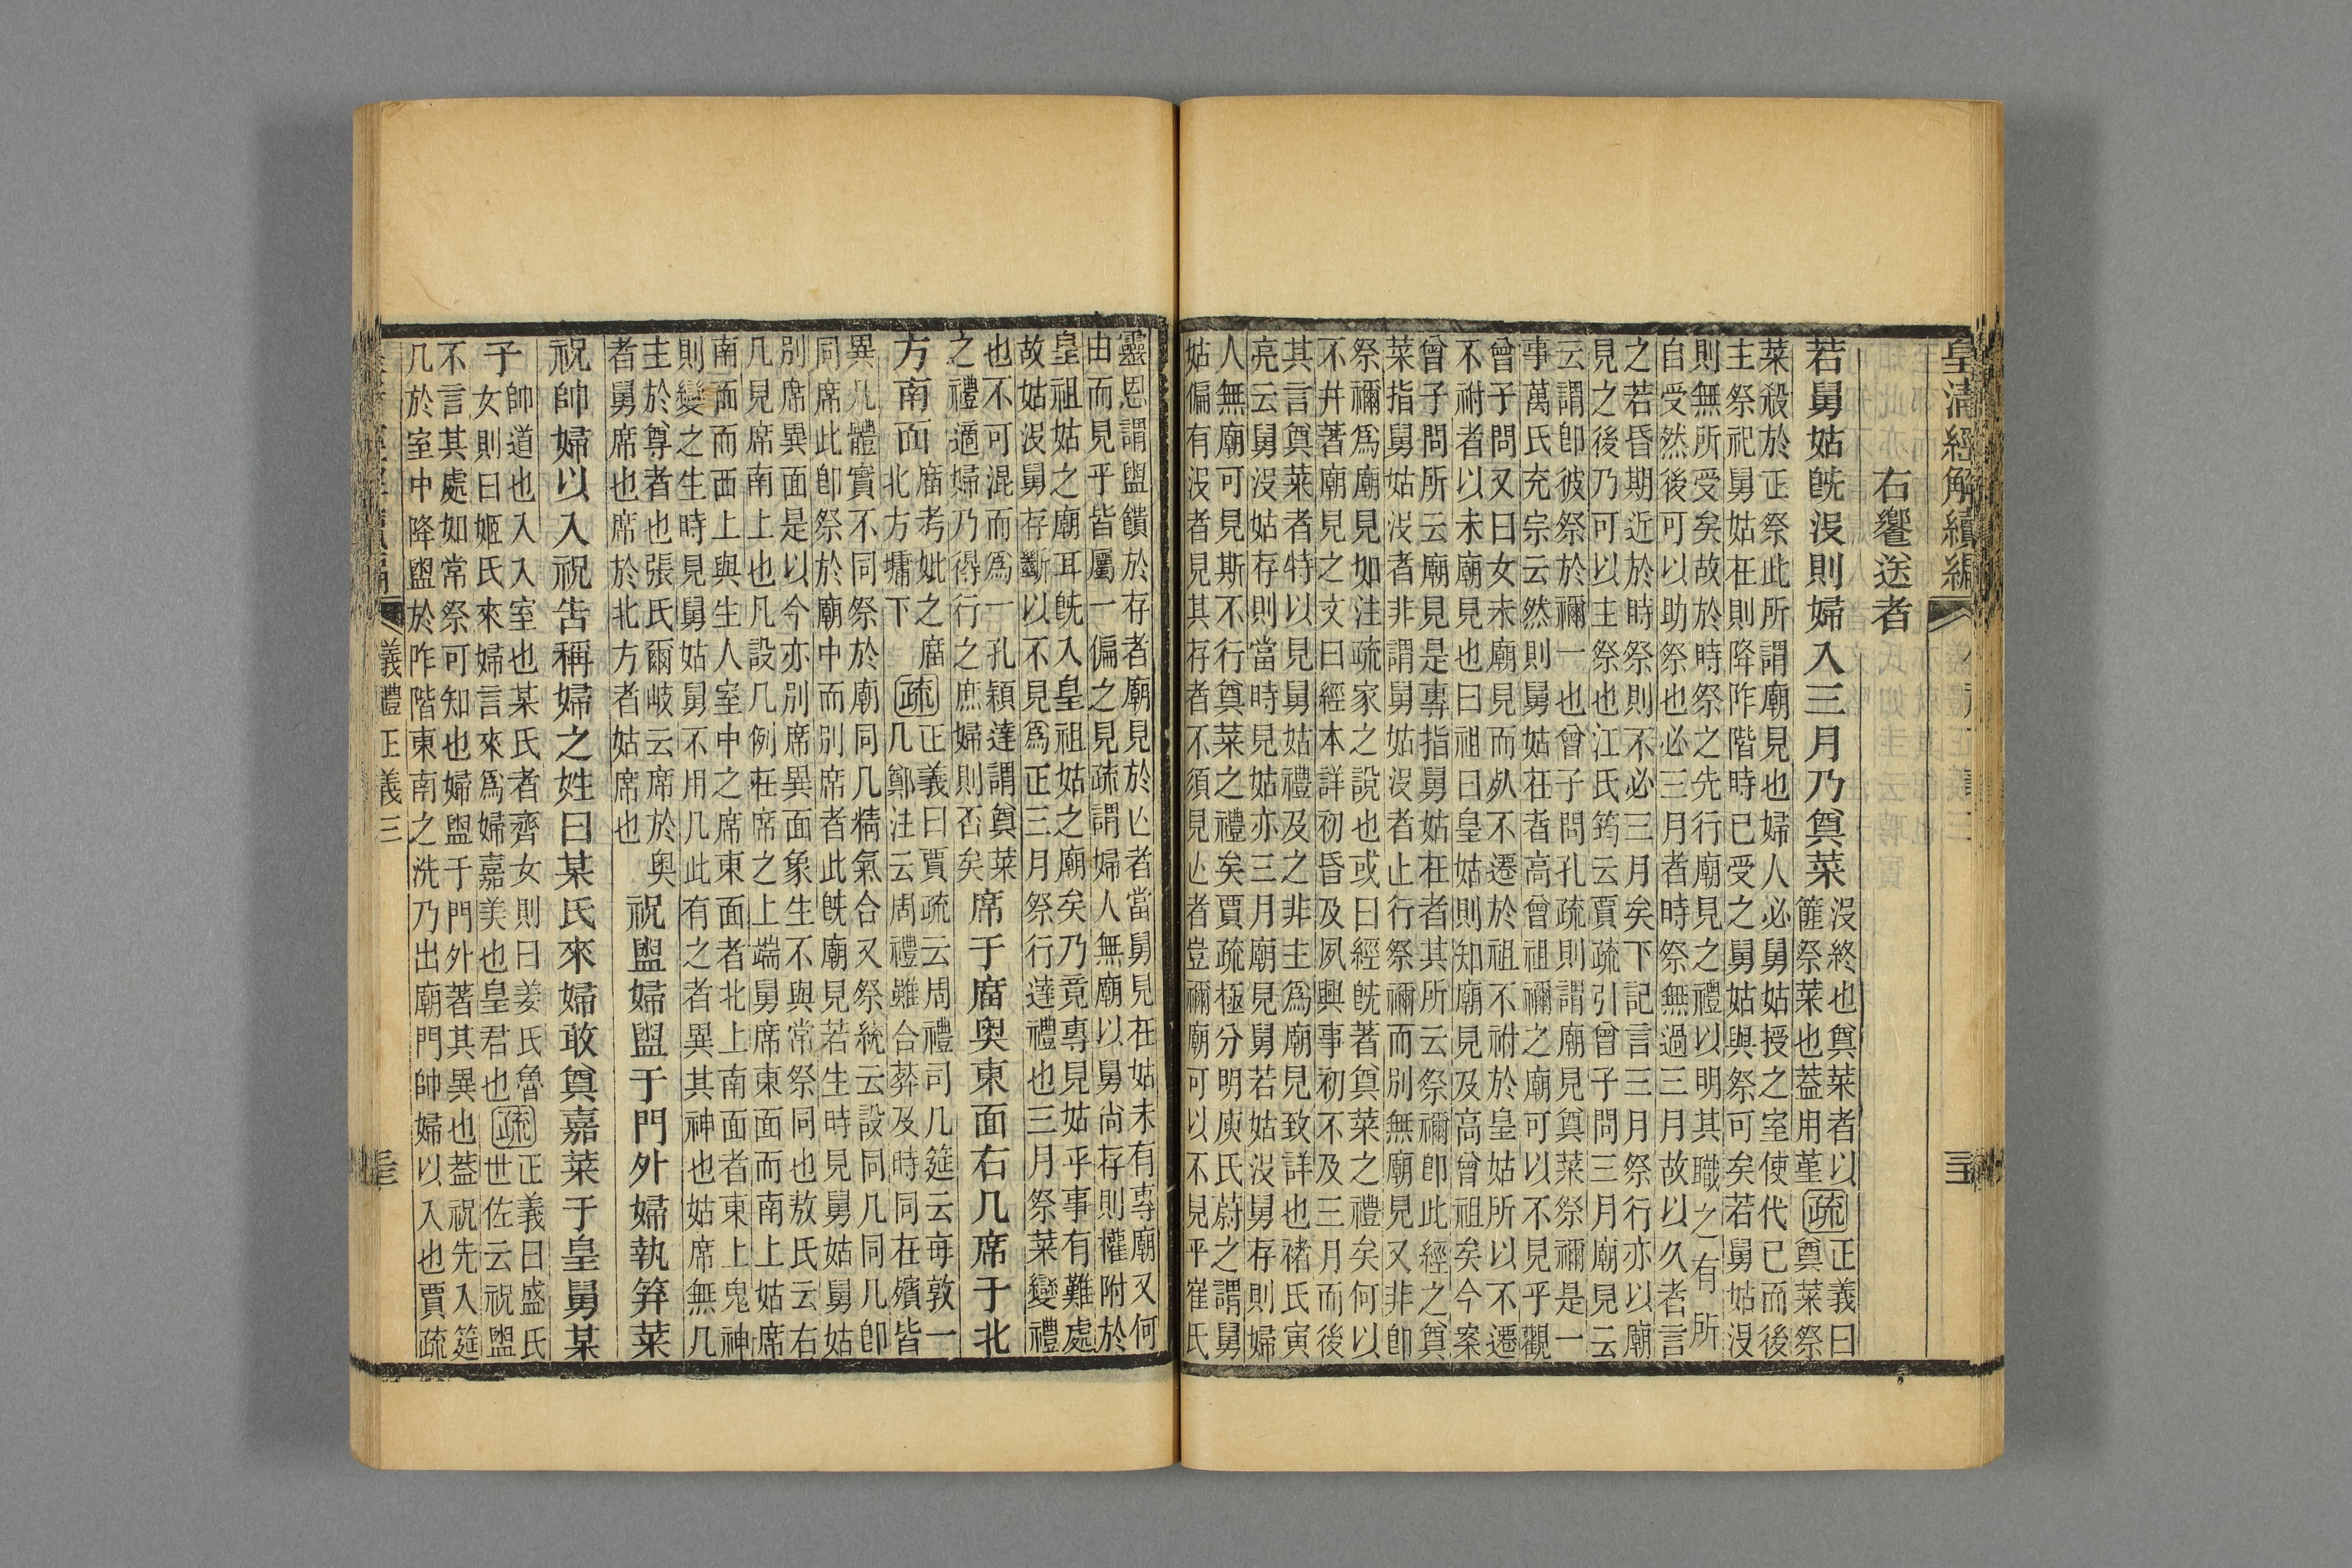 皇清經解續編
右饗送者
若舅姑旣沒則婦入三月乃奠菜 沒終也奠菜者以
篚祭菜也蓋用菫 疏 正義曰
奠菜祭
菜殺於正祭此所謂廟見也婦人必舅姑授之室使代已而後
主祭祀舅姑在則降阼階時已受之舅姑與祭可矣若舅姑沒
則無所受矣故於時祭之先行廟見之禮以明其職之有所
自受然後可以助祭也必三月者時祭無過三月故以久者言
之若昏期近於時祭則不必三月矣下記言三月祭行亦以廟
見之後乃可以主祭也江氏筠云賈疏引曾子問三月廟見云
云謂卽彼祭於禰一也曾子問孔疏則謂廟見奠菜祭禰是一
事萬氏充宗云然則舅姑在者高曾祖禰之廟可以不見乎觀
曾子問又曰女未廟見而死不遷於祖不祔於皇姑所以不遷
不祔者以未廟見也曰祖曰皇姑則知廟見及高曾祖矣今案
曾子問所云廟見是專指舅姑在者其所云祭禰卽此經之奠
菜指舅姑沒者非謂舅姑沒者止行祭禰而別無廟見又非卽
祭禰爲廟見如注疏家之說也或曰經旣著奠菜之禮矣何以
不幷著廟見之文曰經本詳初昏及夙興事初不及三月而後
其言奠菜者特以見舅姑禮及之非主爲廟見致詳也褚氏寅
亮云舅沒姑存則當時見姑亦三月廟見舅若姑沒舅存則婦
人無廟可見斯不行奠菜之禮矣賈疏極分明庾氏蔚之謂舅
姑偏有沒者見其存者不須見亾者豈禰廟可以不見乎崔氏
靈恩謂盥饋於存者廟見於亾者當舅見在姑未有專廟又何
由而見乎皆屬一偏之見疏謂婦人無廟以舅尚存則權附於
皇祖姑之廟耳旣入皇祖姑之廟矣乃竟專見姑乎事有難處
故姑沒舅存斷以不見爲正三月祭行達禮也三月祭菜變禮
也不可混而爲一孔穎達謂奠菜
之禮適婦乃得行之庶婦則否矣 席于廟奧東面右几席于北
方南面 廟考妣之廟
北方墉下 疏 正義曰賈疏云周禮司几筵云每敦一
几鄭注云周禮雖合葬及時同在殯皆
異几體實不同祭於廟同几精氣合又祭統云設同几同几卽
同席此卽祭於廟中而別席者此旣廟見若生時見舅姑舅姑
別席異面是以今亦別席異面象生不與常祭同也敖氏云右
几見席南上也凡設几例在席之上端舅席東面而南上姑席
南面而西上與生人室中之席東面者北上南面者東上鬼神
則變之生時見舅姑舅不用几此有之者異其神也姑席無几
主於尊者也張氏爾岐云席於奧
者舅席也席於北方者姑席也 祝盥婦盥于門外婦執笲菜
祝帥婦以入祝告稱婦之姓曰某氏來婦敢奠嘉菜于皇舅某
子 帥道也入入室也某氏者齊女則曰姜氏魯
女則曰姬氏來婦言來爲婦嘉美也皇君也 疏 正義曰盛氏
世佐云祝盥
不言其處如常祭可知也婦盥于門外著其異也蓋祝先入筵
几於室中降盥於阼階東南之洗乃出廟門帥婦以入也賈疏
禮正義三